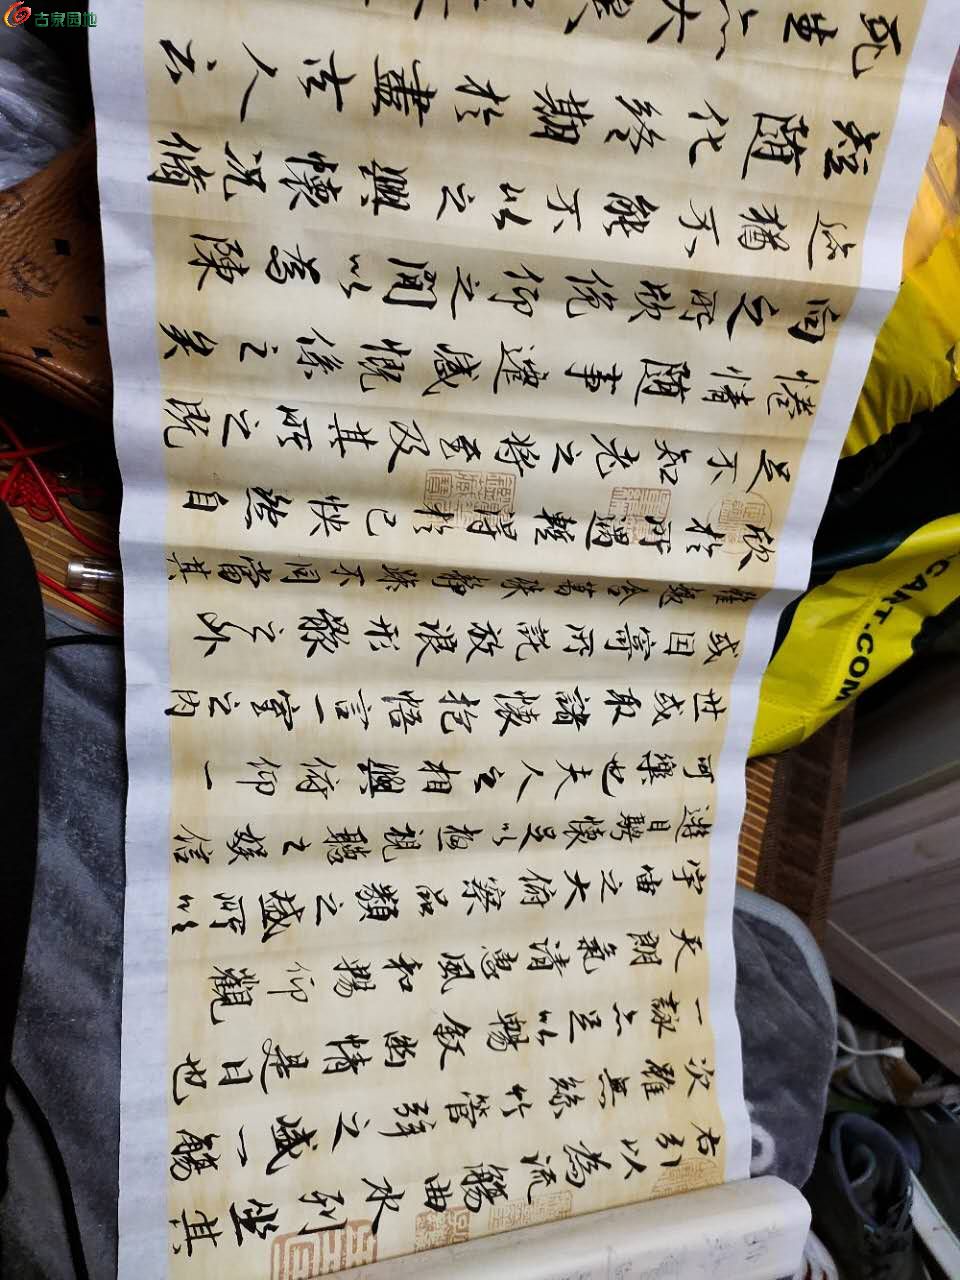 古泉园地
右引以為流觴曲水列坐其
次雖無絲竹管弦之盛一觴
一詠亦足以暢敘幽情是日也
天朗氣清惠風和暢仰觀
宇宙之大俯察品類之盛所以
遊目騁懷足以極視聽之娛信
可樂也夫人之相與俯仰一
世或取諸懷抱悟言一室之內
或因寄所託放浪形骸之外
雖趣舍萬殊靜躁不同當其
欣於所遇暫得於己快然自
足不知老之將至及其所之既
惓情隨事遷感慨係之矣
向之所欣俛仰之間以為陳
迹猶不能不以之興懷況脩
短隨化終期於盡古人云
死生亦大矣
CART.COM